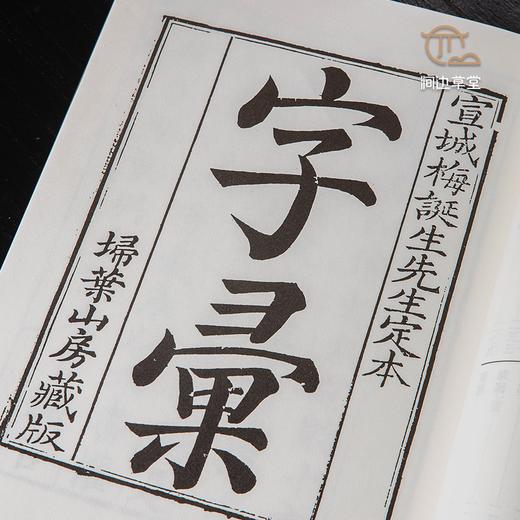 宣城梅誕生先生定本
字彙
埽葉山房藏版
涧边草堂